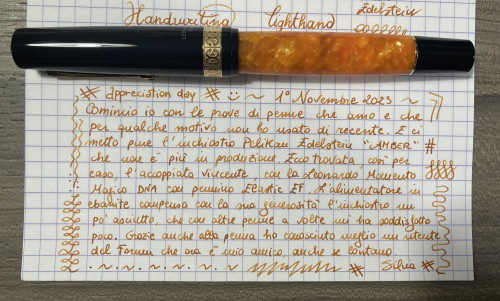 Handwriting lighthand Edelstein
# appreciation day # :) ~ 1° Novembre 2023 ~
Comincio io con le prove di penne che amo e che
per qualche motivo non ho usato di recente. E ci
metto pure l'inchiostro Pelikan Edelstein "AMBER" #
che non è più in produzione. Ecco trovata così per
caso, l'accoppiata vincente, con la Leonardo Momento
Magico DNA con pennino Elastic EF. L'alimentatore in
ebanite compensa con la sua generosità l'inchiostro un
po' asciutto, che con altre penne a volte mi ha soddisfatto
poco. Grazie anche alla penna ho conosciuto meglio un utente
del Forum che ora è mio amico, anche se lontano.
# Silvia #